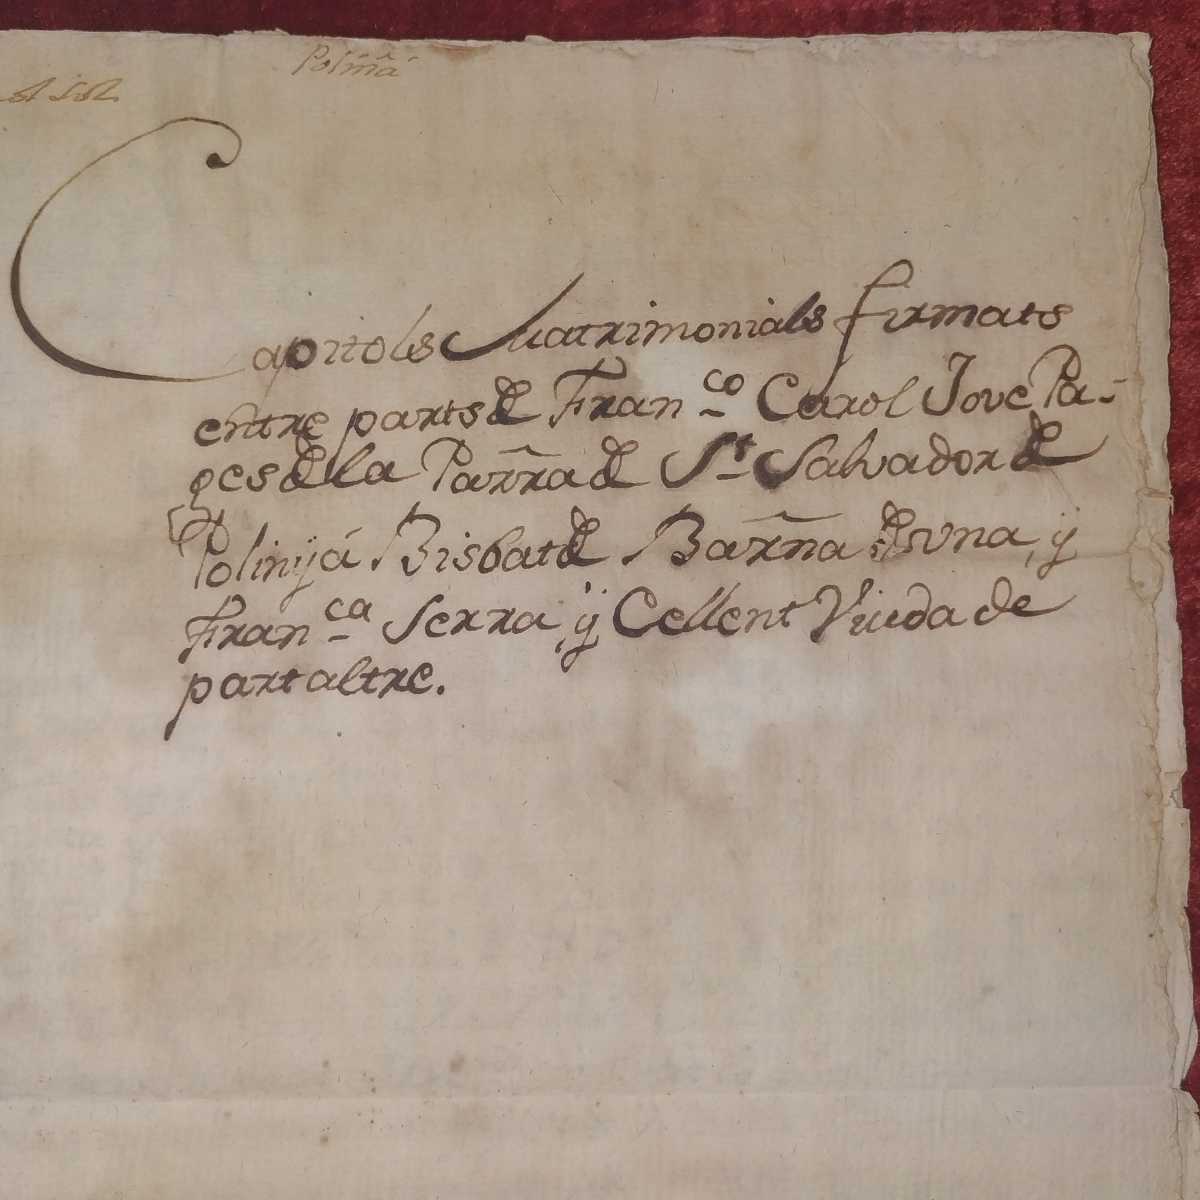 Polinÿá
Capitols Matrimonials firmats
entre parts de Fran.co Carol Jove Pa-
ges de la Parr̃a de St. Salvador de
Polinÿá Bisbat de Barñª de una, ÿ
Fran.ca Serra, ÿ Cellent Viuda de
part altre.